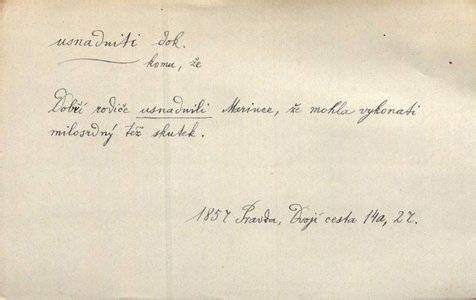 usnadniti dok.
komu, že
Dobří rodiče usnadnili Marince, že mohla vykonati
milosrdný též skutek.
1857 Pravda, Dvojí cesta 14a, 27.